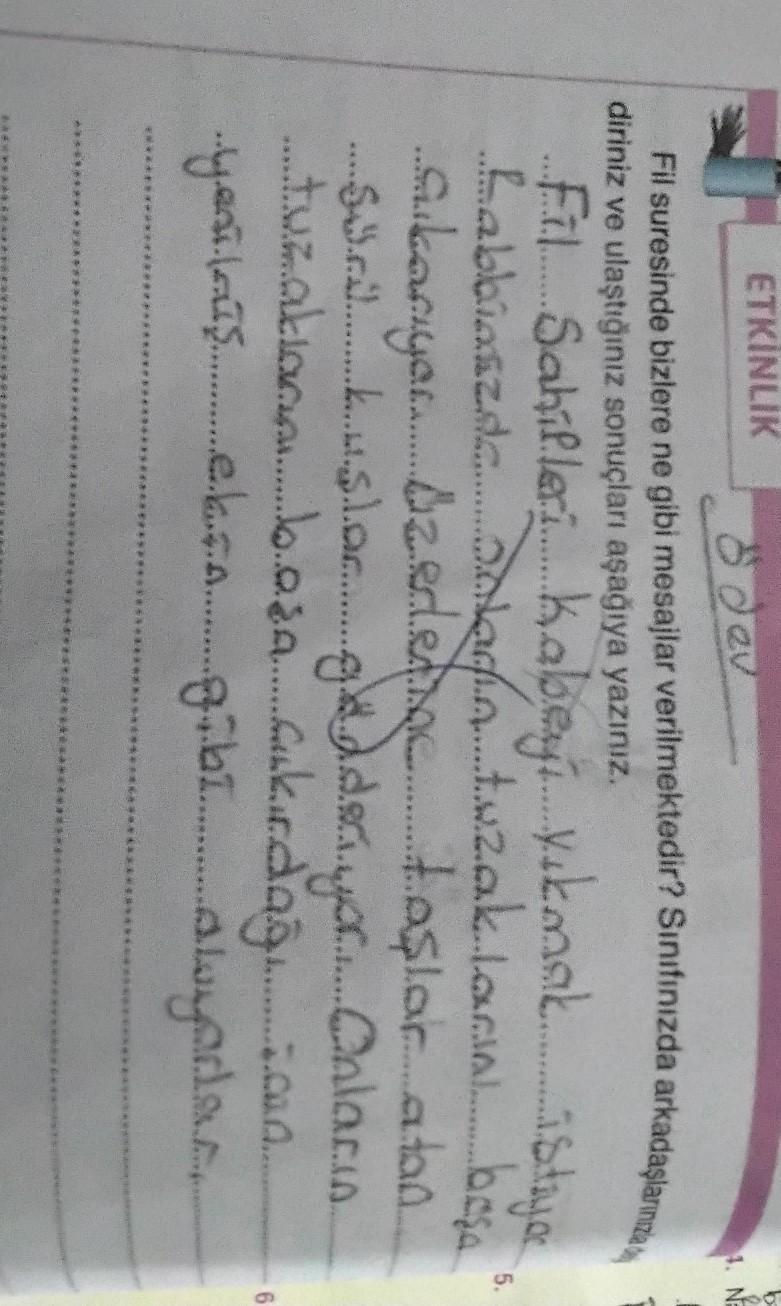 ETKİNLİK
Ödev
Fil suresinde bizlere ne gibi mesajlar verilmektedir? Sınıfınızda arkadaşlarınızla
diriniz ve ulaştığınız sonuçları aşağıya yazınız.
Fil Sahipleri Kabeyi Yıkmak istiyor
Rabbimizde onların tuzaklarını boşa
çıkarıyor. Üzerlerine taşlar atan
sürü kuşlar gödderiyor. Onların
tuzaklarını boşa çıkırdağı için
yenilmiş ekin gibi oluyorlar.
1.
5.
6